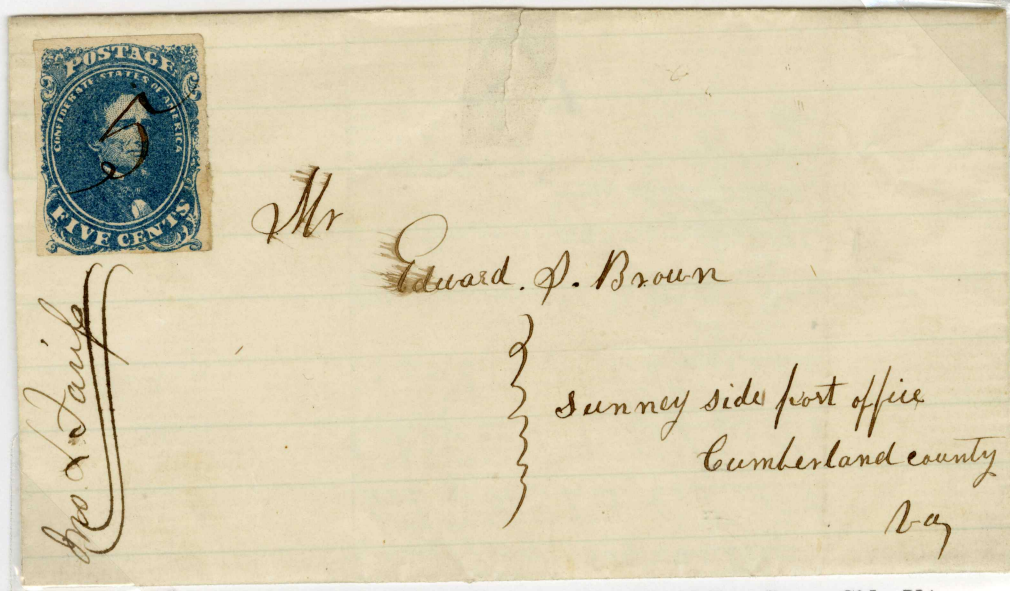 POSTAGE
CONFEDERATE STATES OF AMERICA
5
FIVE CENTS
Mr
Edward. S. Brown
sunney side post office
Cumberland county
Va
Jno. L.